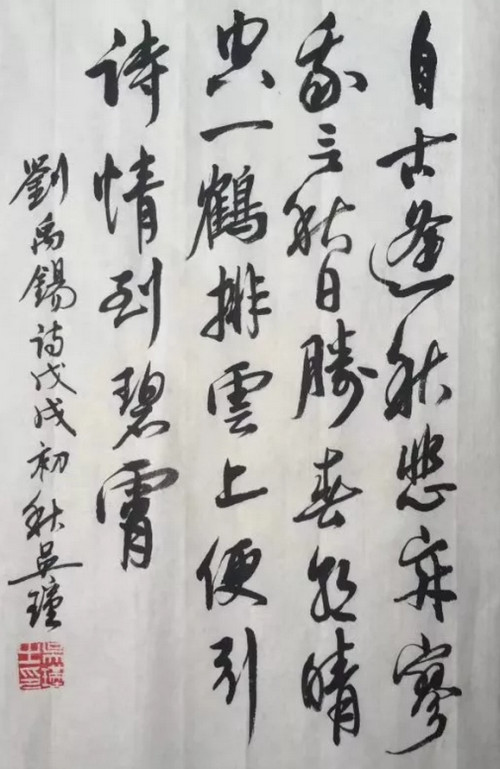 自古逢秋悲寂寥
我言秋日勝春朝晴
空一鶴排雲上便引
詩情到碧霄
劉禹錫詩戊戌初秋吴瑾